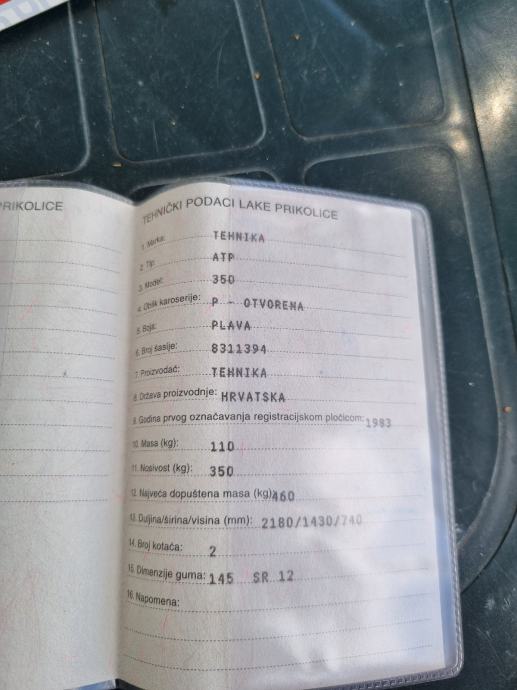 PRIKOLICE
TEHNIČKI PODACI LAKE PRIKOLICE
1. Marka: TEHNIKA
2. Tip: ATP
3. Model: 350
4. Oblik karoserije: P - OTVORENA
5. Boja: PLAVA
6. Broj šasije: 8311394
7. Proizvođač: TEHNIKA
8. Država proizvodnje: HRVATSKA
9. Godina prvog označavanja registracijskom pločicom: 1983
10. Masa (kg): 110
11. Nosivost (kg): 350
12. Najveća dopuštena masa (kg) 460
13. Duljina/širina/visina (mm): 2180/1430/740
14. Broj kotača: 2
15. Dimenzije guma: 145 SR 12
16. Napomena: